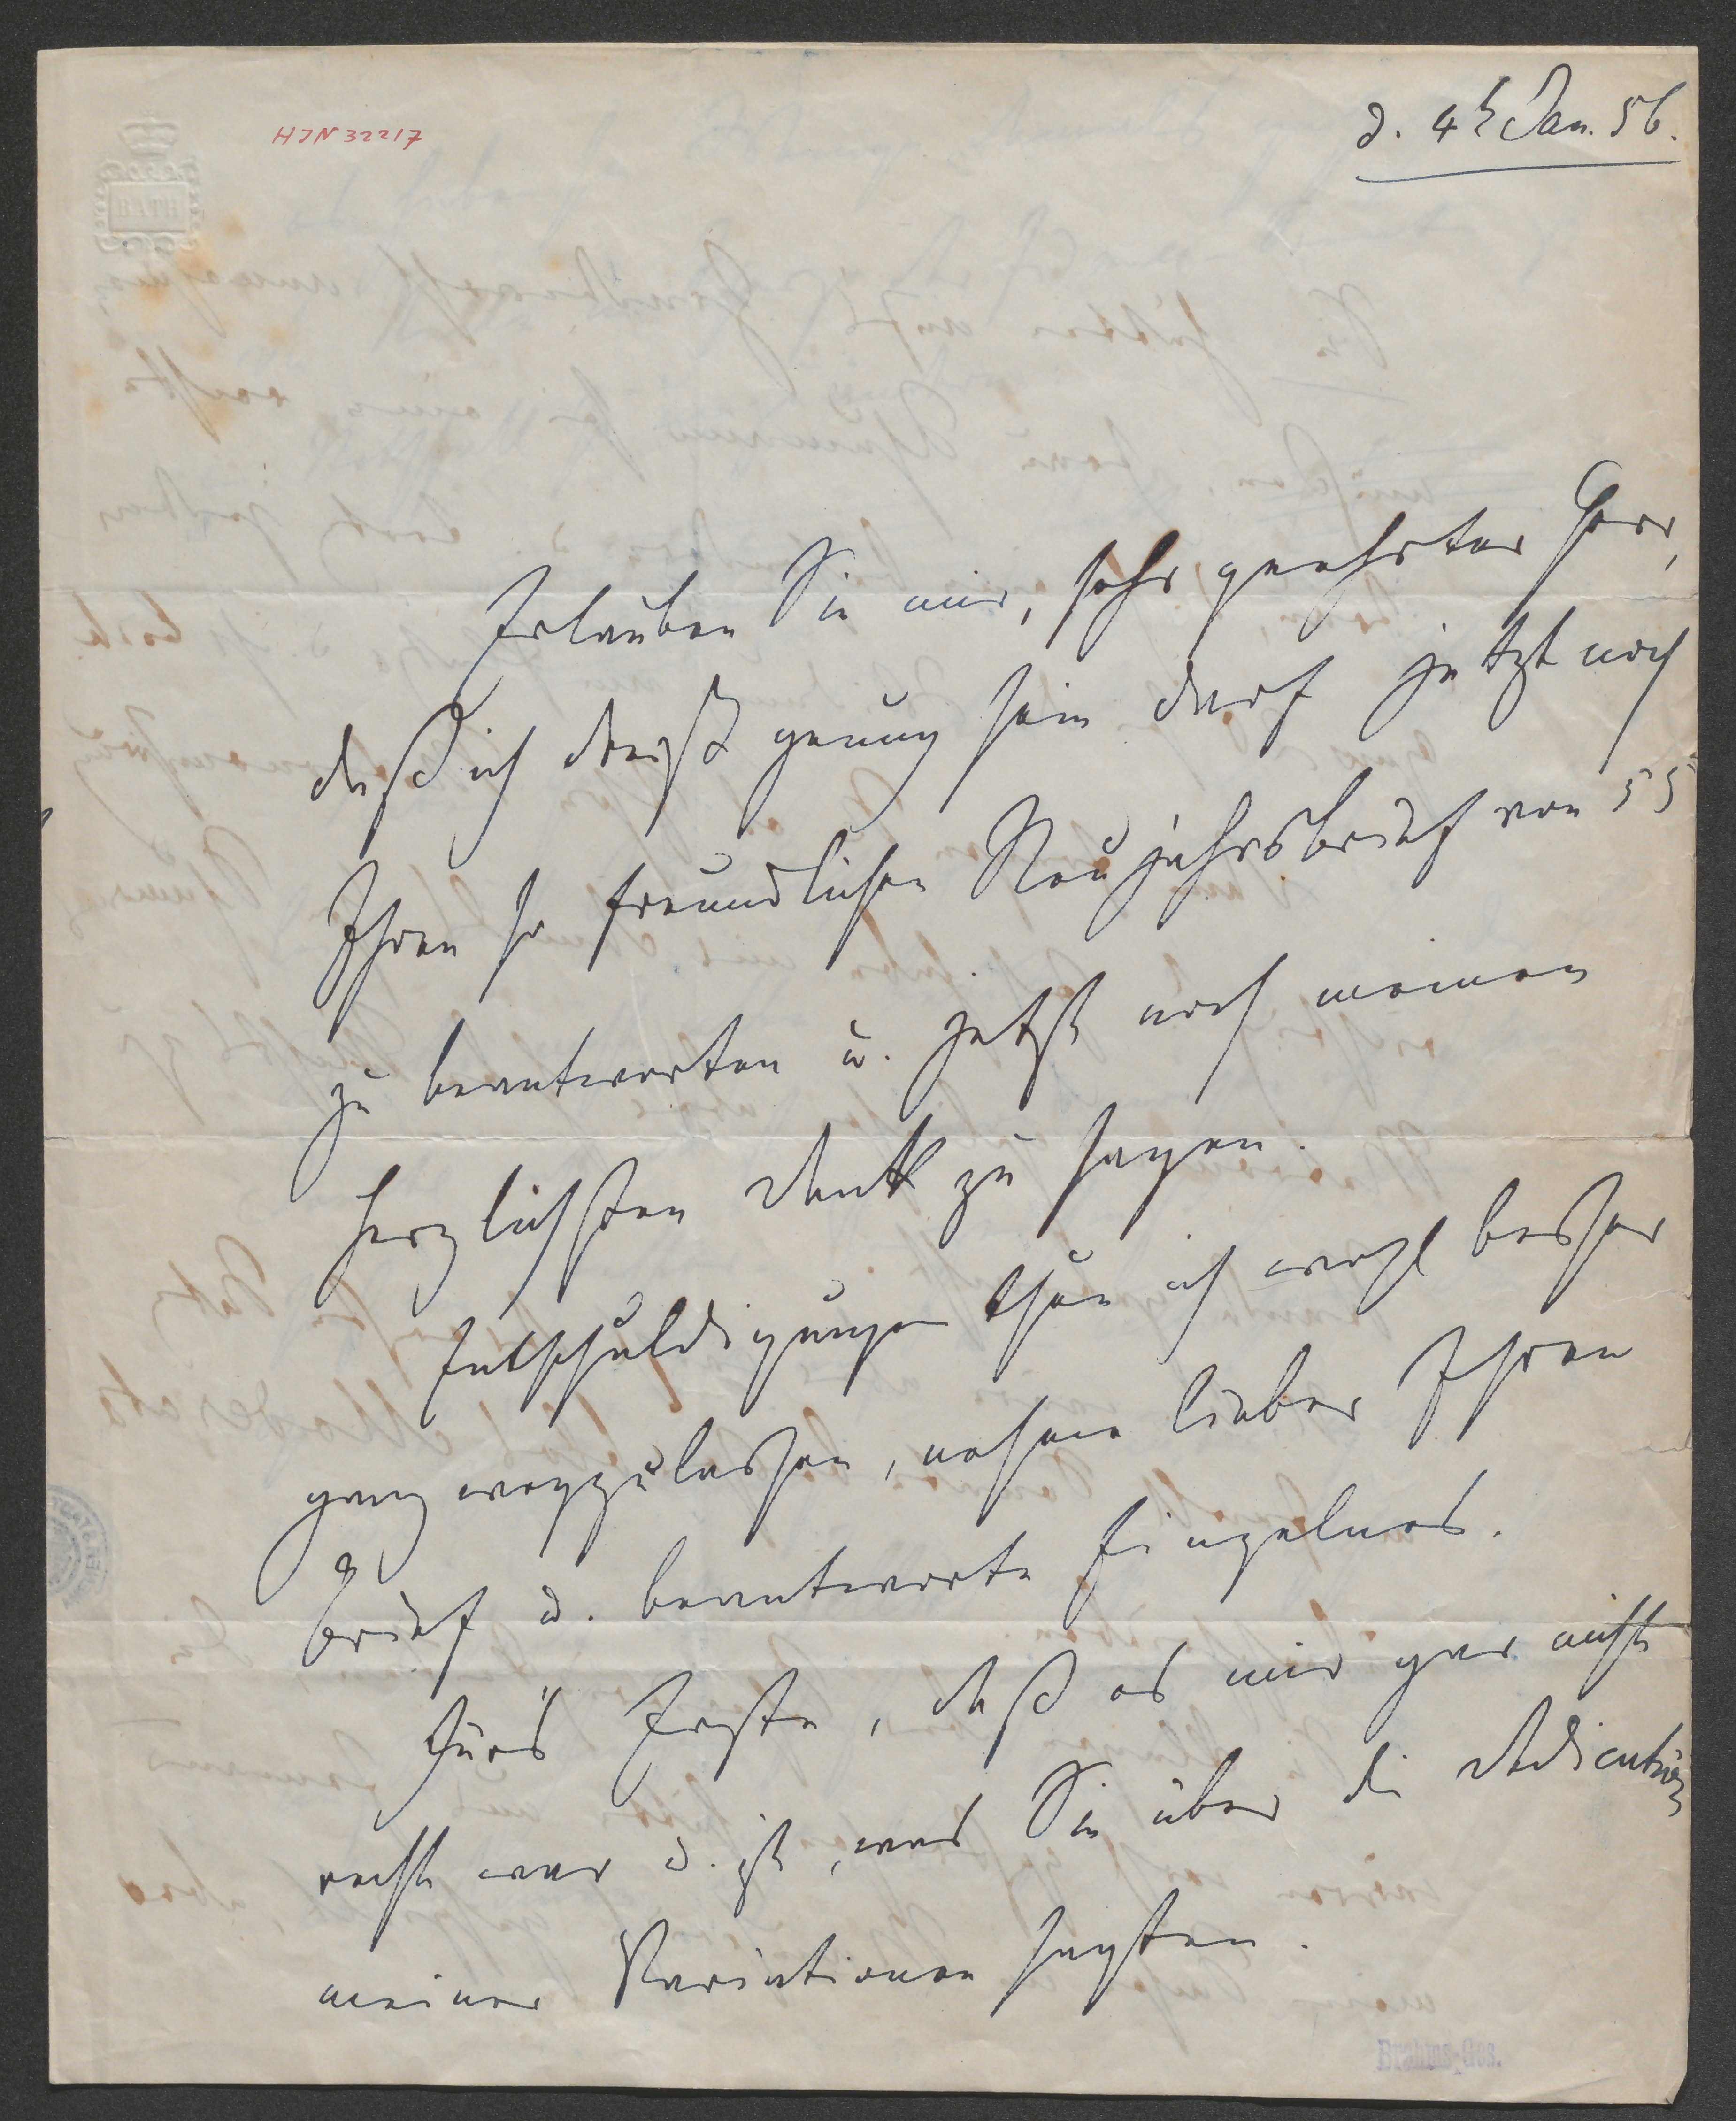 HJN 32217
BATH
d. 4t Jan. 56.
Erlauben Sie mir, sehr geehrter Herr,
daß ich dreist genug sein darf jetzt noch
Ihren so freundlichen Neujahrsbrief von 55
zu beantworten u. jetzt noch meinen
herzlichsten Dank zu sagen.
Entschuldigungen thue ich wohl besser
ganz wegzulassen, nehme lieber Ihren
Brief u. beantworte Einzelnes.
Fürs Erste, daß es mir gar nicht
recht war u. ist, was Sie über die Dedication
meiner Variationen sagten.
Brahms-Ges.